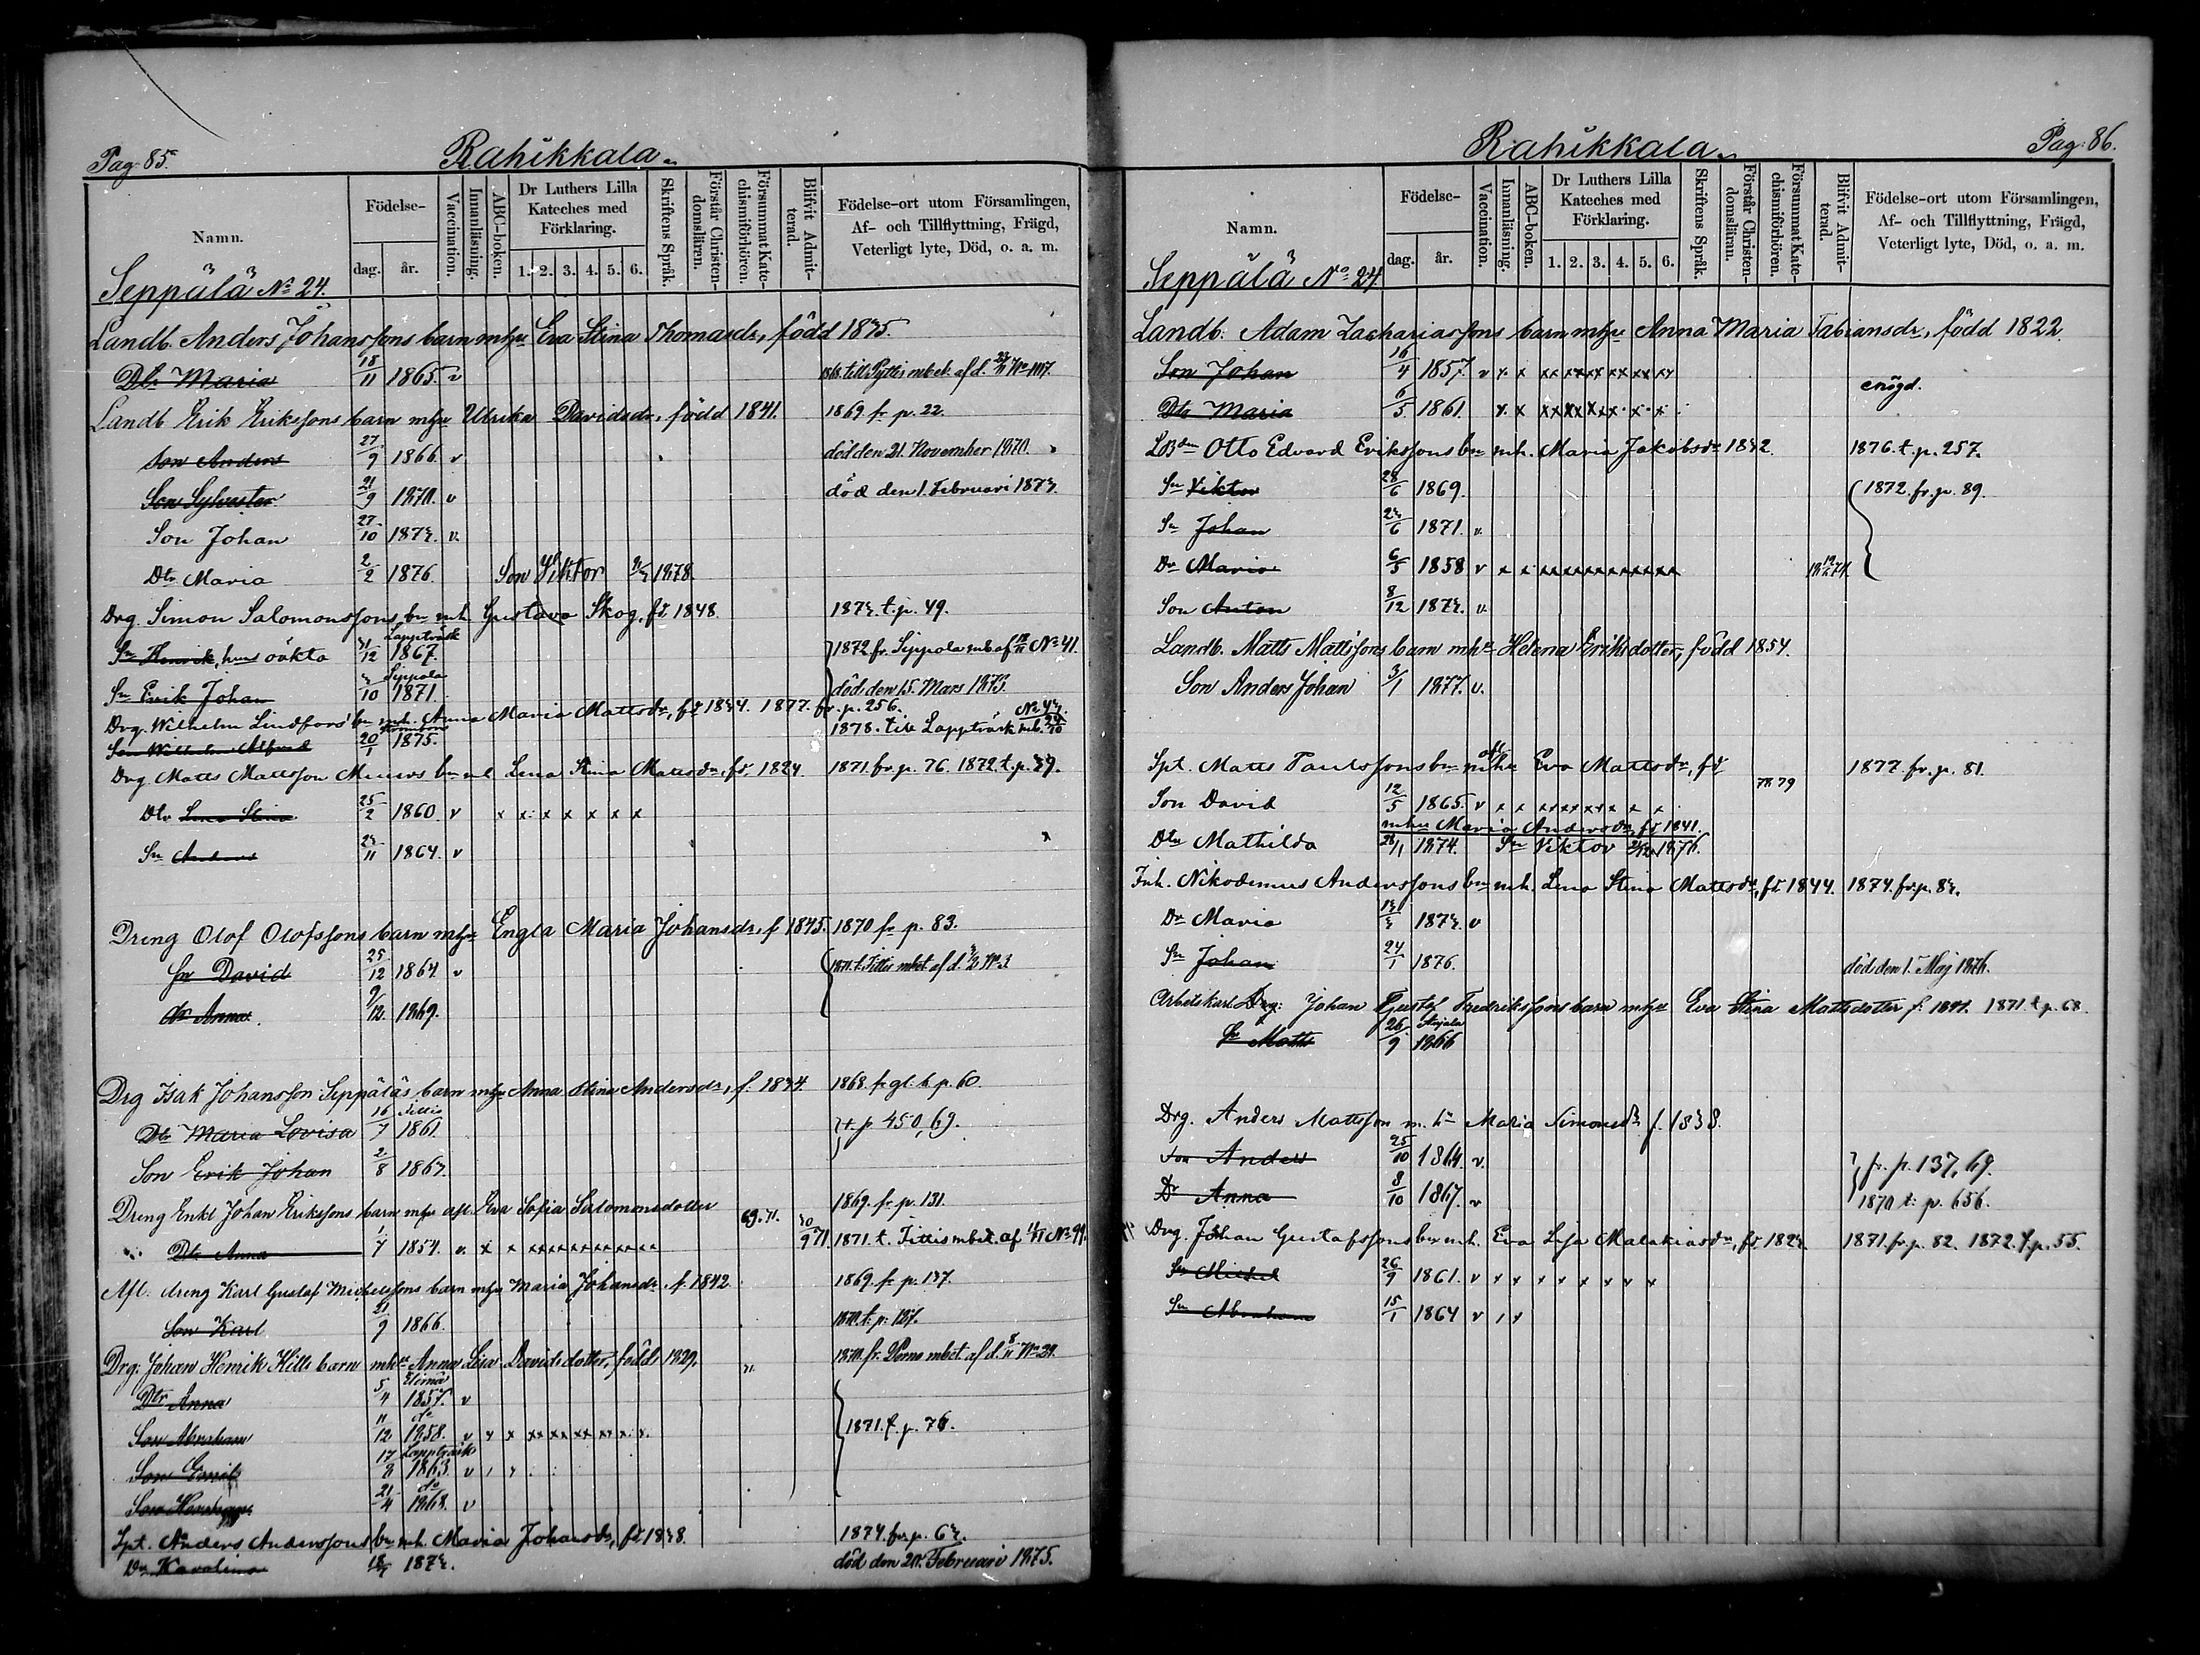 Pag: 85.
Rahikkala
Namn.
Födelse-
dag.
år.
Vaccination.
Innanläsning.
ABC-boken.
Dr Luthers Lilla Kateches med Förklaring.
1. 2. 3. 4. 5. 6.
Skriftens Språk.
Förstår Christendomsläran.
Försummat Katechismiförhören.
Blifvit Admitterad.
Födelse-ort utom Församlingen, Af- och Tillflyttning, Frägd, Veterligt lyte, Död, o. a. m.
Seppälä No 24.
Landb. Anders Johanssons barn mhu Eva Stina Thomasdr, född 1835.
Dtr Maria 18/11 1865. v
Landb Erik Erikssons barn mhu Ulrika Davidsdr, född 1841. 1869 fr p. 22.
Son Anders 27/9 1866. v död den 21. November 1870.
Son Sylvester 21/9 1870. v död den 1. Februari 1873.
Son Johan 27/10 1873. v.
Dtr Maria 2/2 1876. Son Viktor 1878.
Drg. Simon Salomonssons bn mh. Gustava Skog, fd 1848. 1873. t. p. 49.
Lappträsk
Sn Henrik, hus oäkta 31/12 1867. 1872 fr. Sippola mb af No 41.
Sippola
Sn Erik Johan 3/10 1871 död den 15. Mars 1873.
Drg. Wilhelm Lindfors' bn mh. Anna Maria Mattsdr, fd 1834. 1877. fr. p. 256.
Son Wilhelm Alfred 20/1 1875. 1878. till Lappträsk mb.
Drg Matts Mattsson Muurs bn mh Lena Stina Mattsdr, fd. 1824. 1871. fr. p. 76. 1872. t. p. 39.
Dtr Lena Stina 25/2 1860. v x x x x x x x
Sn Anders 23/11 1864. v
Dreng Olof Olofssons barn mhu Engla Maria Johansdr, f 1845. 1870 fr p. 83.
Sn David 25/12 1864 v
dr Anna. 9/12. 1869.
Drg Isak Johansson Seppäläs barn mhu Anna Stina Andersdr, f. 1834. 1868. fr gl. b. p. 60.
Dtr Maria Lovisa 16/7 1861. t. p 450, 69.
Son Erik Johan 2/8 1867.
Dreng Enkl Johan Erikssons barn mhu afl Eva Sofia Salomonsdotter 69. 71. 1869. fr p. 131.
Dtr Anna 1/7 1854. v. x x xxxxxxxxxx 30/9 71. 1871. t. Tittis mbet. af No 99.
Afl. dreng Karl Gustaf Michelssons barn mhu Maria Johansdr. f. 1842. 1869. fr p. 137.
Son Karl 21/9 1866. 1870. t. p. 137.
Drg. Johan Henrik Hills barn mhu Anna Lisa Davidsdotter, född 1829. 71. 1870. fr. Perno mbet af d. 8/11 No 29.
Elimä
Dtr Anna 5/4 1857. v
do
Son Abraham 11/12 1858. v v x xx xx xx xx x x. 1871. t. p. 76.
Lappträsk
Son Emil 17/2 1863. v
do
Son Herman 21/4 1868. v
Spt. Anders Anderssons bn mh. Maria Johansdr, fd 1838. 1874. fr. p. 63.
Dr Karolina 1873. död den 20. Februari 1875.
Rahikkala
Pag: 86.
Namn.
Födelse-
dag.
år.
Vaccination.
Innanläsning.
ABC-boken.
Dr Luthers Lilla Kateches med Förklaring.
1. 2. 3. 4. 5. 6.
Skriftens Språk.
Förstår Christendomsläran.
Försummat Katechismiförhören.
Blifvit Admitterad.
Födelse-ort utom Församlingen, Af- och Tillflyttning, Frägd, Veterligt lyte, Död, o. a. m.
Seppälä No 24
Landb. Adam Zachariassons barn mhu Anna Maria Fabiansdr, född 1822.
Son Johan 16/4 1857. v x x xx xx xx xx xx xx
enögd.
Dtr Maria 6/5 1861. x x xx xx xx x x
LBdn Otto Edvard Erikssons bn mh. Maria Jakobsdr 1832. 1876. t. p. 257.
Sn Viktor 28/6 1869. 1872. fr. p. 89.
Sn Johan 23/6 1871. v.
Dr Maria 6/5 1858 v x x xxxxxxxxxxx
Son Anton 8/12 1873. v.
Landb. Matts Mattssons barn mhu Helena Eriksdotter, född 1854.
Son Anders Johan 3/1 1877. v.
Spt. Matts Paulssons bn mhu afl Eva Mattsdr, fd 1877. fr. p. 81.
78 79
Son David 12/5 1865. v x x xx xx xx x x
mhu Maria Andersdr, fd 1841.
Dtr Mathilda 28/1 1874. Sn Viktor 1876.
Inh. Nikodemus Anderssons bn mh. Lena Stina Mattsdr, fd. 1844. 1874. fr. p. 83.
Dr Maria 1873. v
Sn Johan 24/1 1876. död den 1. Maj 1876.
Arbetskarl Drg: Johan Gustaf Fredrikssons barn mhu Eva Stina Mattsdotter f. 1841. 1871. t. p. 68.
Anjala
Sn Matts 26/9 1866
Drg. Anders Mattsson m. hu Maria Simonsdr f. 1838.
Son Anders 25/10 1864. v. fr. p. 137, 69.
Dr Anna 8/10 1867. v 1870 t. p. 656.
Drg. Johan Gustafssons bn mh. Eva Lisa Malakiasdr, fd. 1823. 1871. fr. p. 82. 1872. t. p. 55.
Sn Mickel 26/9 1861. v x x x x x x x x
Sn Abraham 15/1 1864 v